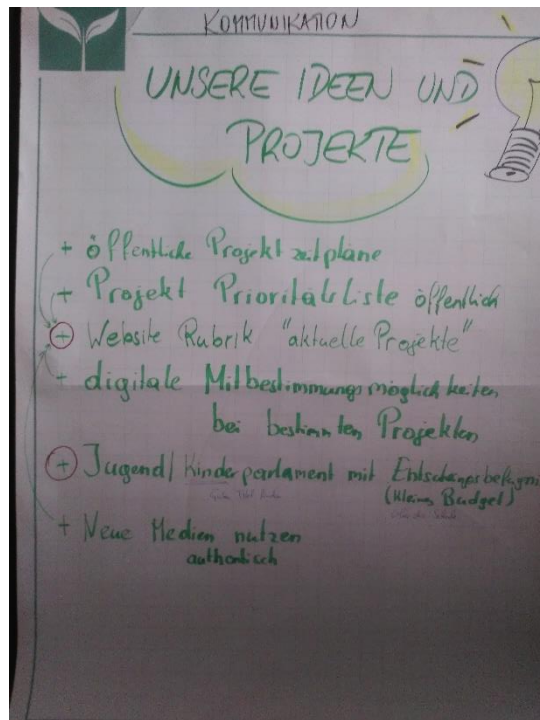 KOMMUNIKATION
UNSERE IDEEN UND
PROJEKTE
+ öffentliche Projektzeitpläne
+ Projekt Prioritätsliste öffentlich
+ Website Rubrik "aktuelle Projekte"
+ digitale Mitbestimmungsmöglichkeiten
bei bestimmten Projekten
+ Jugend/Kinderparlament mit
(kleines Budget)
+ Neue Medien nutzen
authentisch